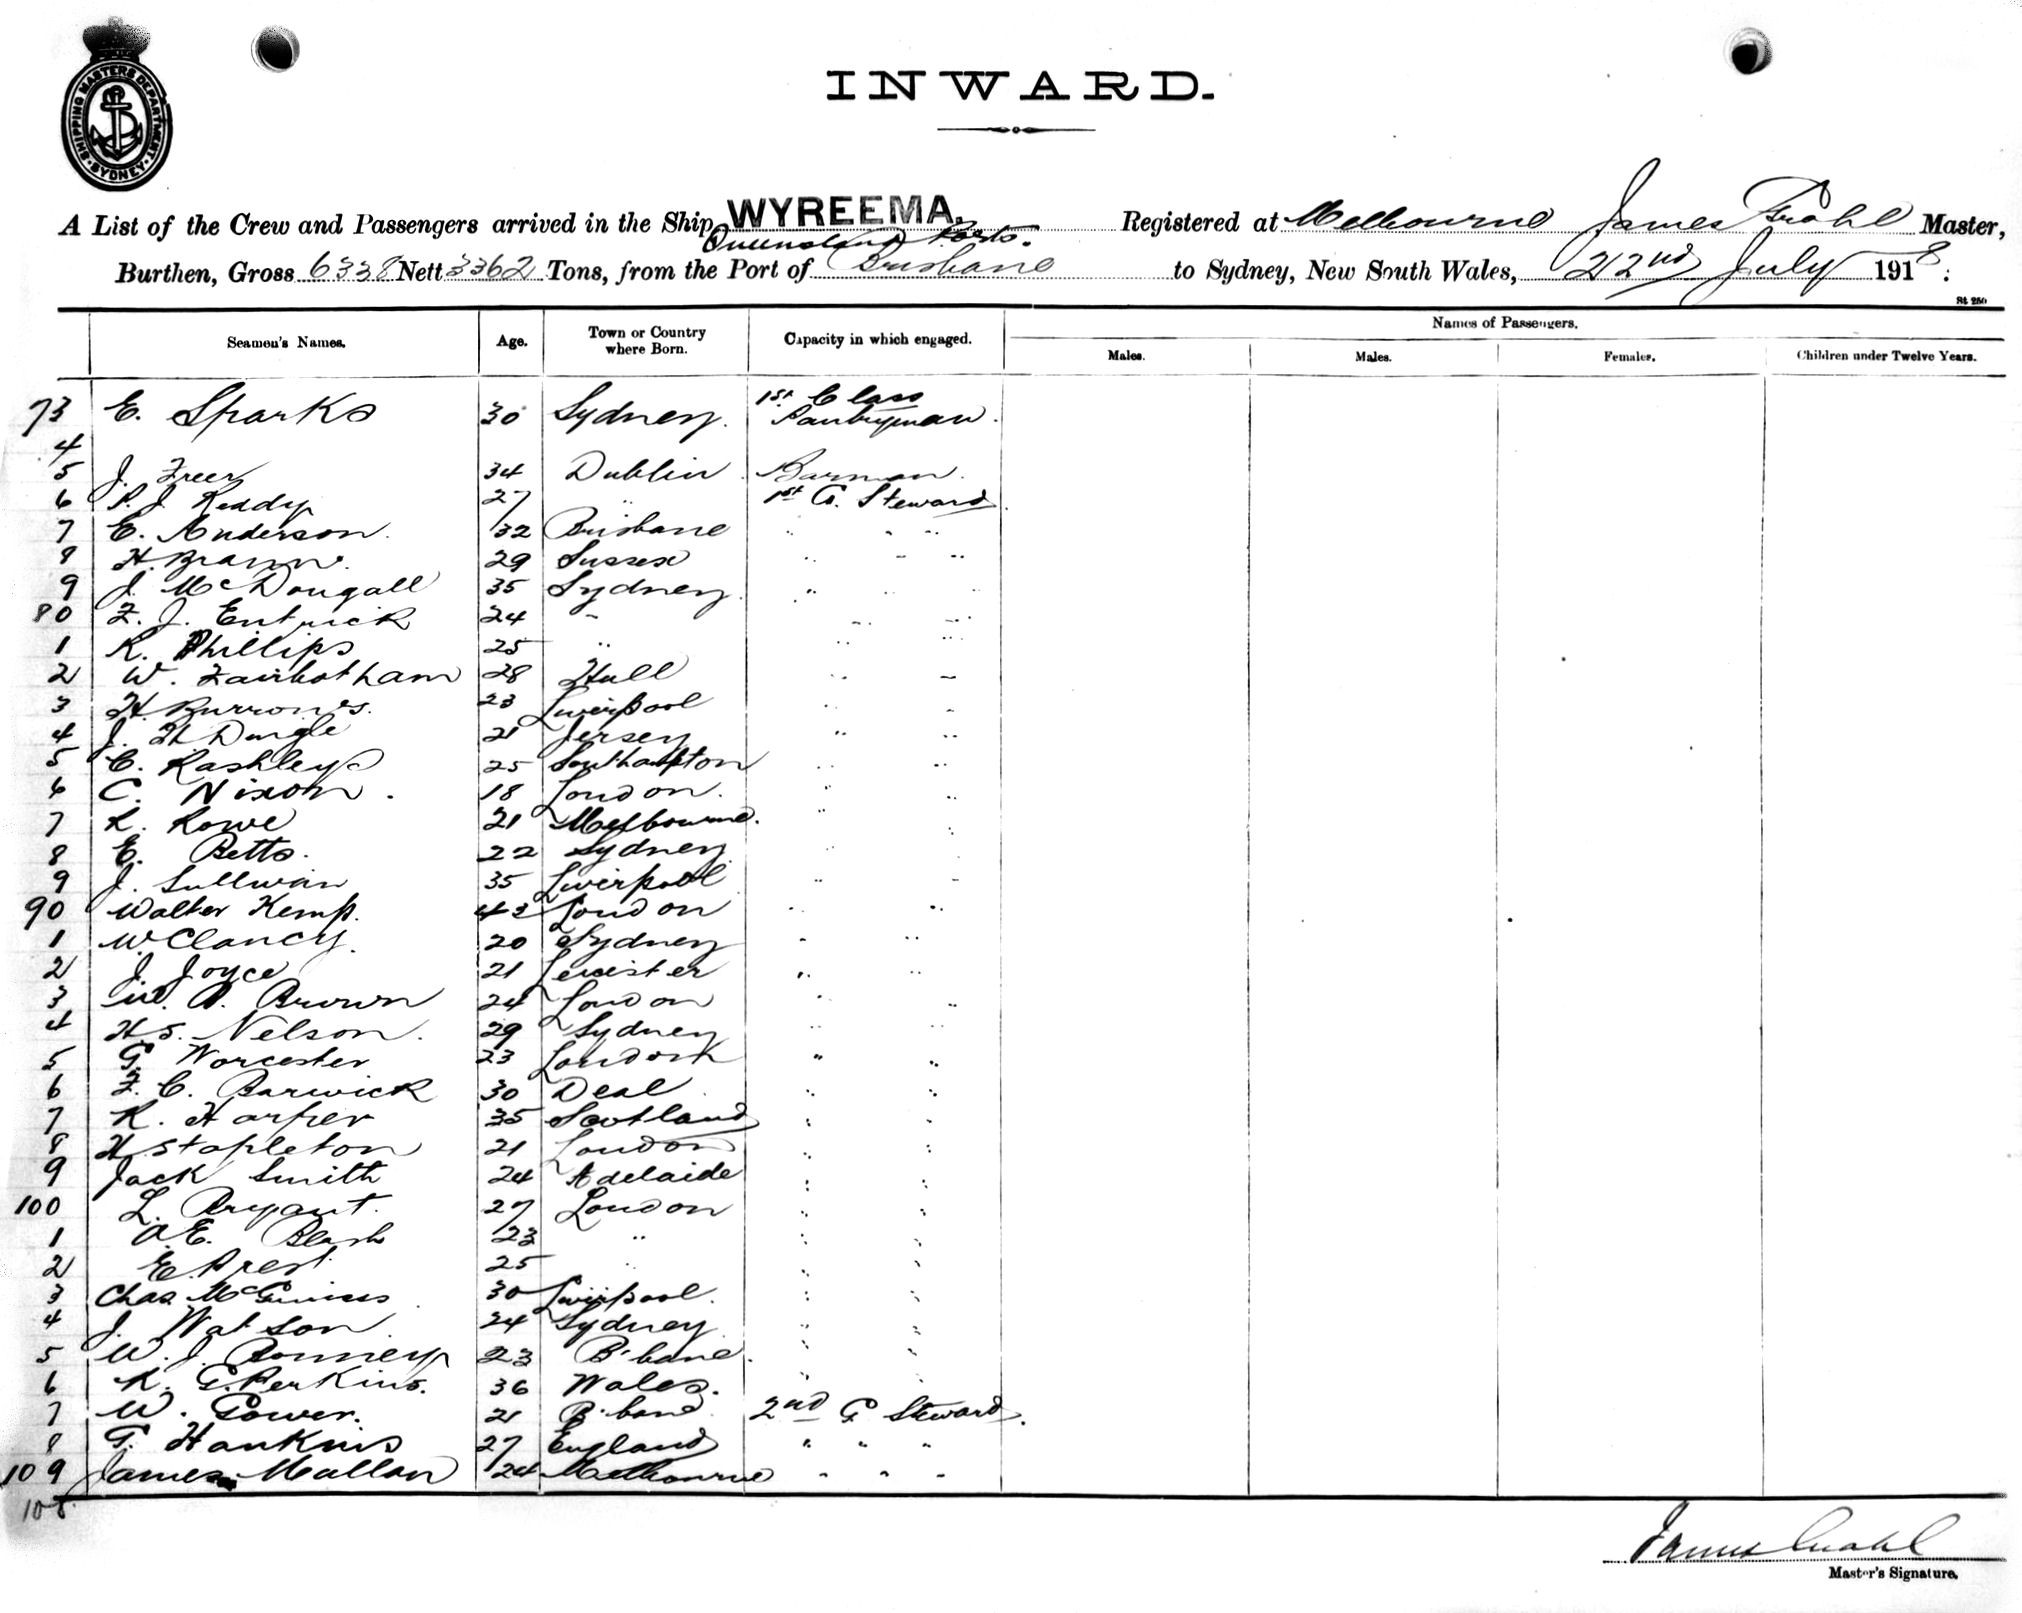 SHIPPING MASTERS DEPARTMENT · SYDNEY ·
INWARD.
A List of the Crew and Passengers arrived in the Ship WYREEMA. Registered at Melbourne James Master,
Queensland Ports.
Burthen, Gross 6338 Nett 3362 Tons, from the Port of Brisbane to Sydney, New South Wales, 22nd July 1918.
St 250
Names of Passengers.
Seamen's Names. Age. Town or Country where Born. Capacity in which engaged. Males. Males. Females. Children under Twelve Years.
73 E. Sparks 30 Sydney. 1st Class Pantryman.
4
5 J. Freer 34 Dublin Barman.
6 P. J. Reddy 27 " 1st C. Steward
7 E. Anderson. 32 Brisbane " " "
8 H. 29 Sussex " " "
9 J. McDougall 35 Sydney. " " "
80 F. J. Entrick 24 " " "
1 R. Phillips 25 " " "
2 W. Fairbotham 28 Hull " "
3 H. Burrows. 23 Liverpool " "
4 J. H. Dingle 21 Jersey " "
5 C. Rashleys 25 Southampton " "
6 C. Nixon. 18 London. " "
7 R. Rowe 21 Melbourne. " "
8 E. Betts. 22 Sydney " "
9 J. Sullivan 35 Liverpool " "
90 Walter Kemp. 43 London " "
1 W. Clancy. 20 Sydney " "
2 J. Joyce 21 Leicester " "
3 W. A. Brown 24 London " "
4 H. S. Nelson. 29 Sydney " "
5 G. Worcester 23 London " "
6 F. C. Barwick 30 Deal " "
7 R. Harper 35 Scotland " "
8 H Stapleton 21 London " "
9 Jack Smith 24 Adelaide " "
100 L. Bryant. 27 London " "
1 A. E. 23 " " "
2 E. Prest 25 " " "
3 Chas. McGuiness 30 Liverpool. " "
4 J. Watson 24 Sydney " "
5 W. J. 23 B'bane. " "
6 R. G. Perkins. 36 Wales. " "
7 W. Gower. 21 B'bane 2nd C. Steward.
8 G. Hankins 27 England " " "
109 James Mallan 24 Melbourne " " "
108
James
Master's Signature.